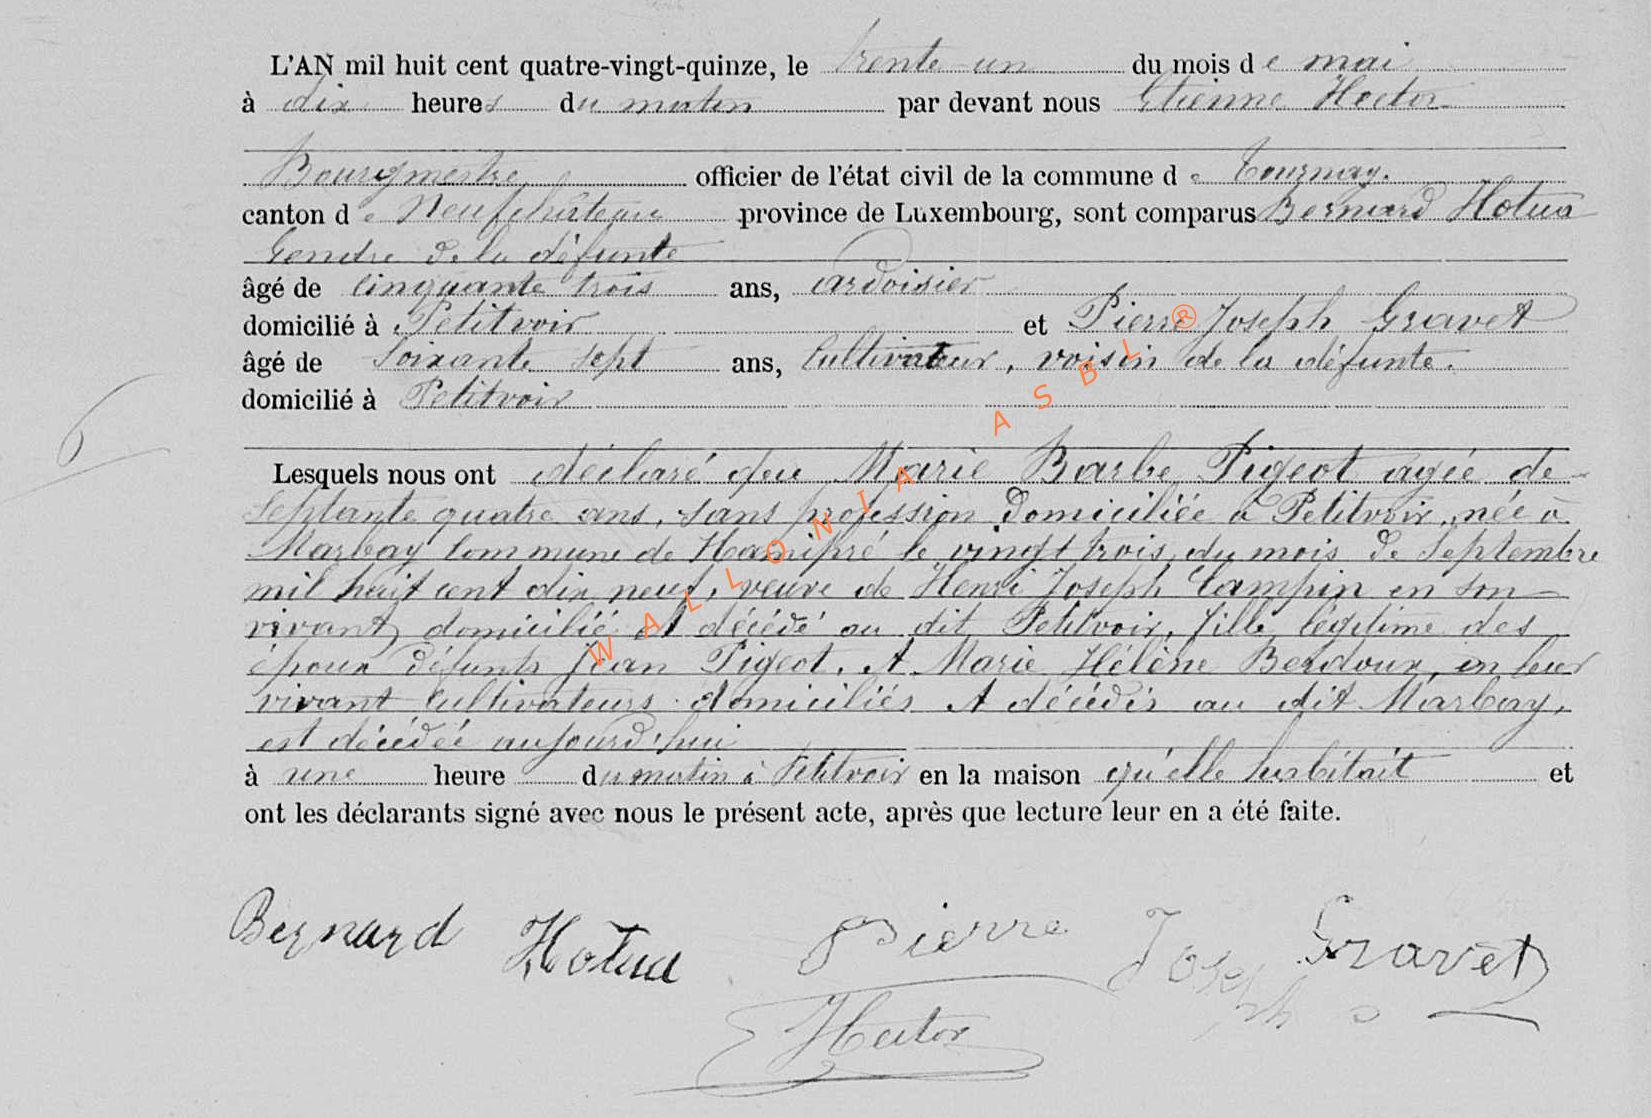 L'AN mil huit cent quatre-vingt-quinze, le trente un du mois de mai
à dix heures du matin par devant nous Etienne Hector
Bourgmestre officier de l'état civil de la commune de Tournay.
canton de Neufchâteau province de Luxembourg, sont comparus Bernard Hotua
Gendre de la défunte
âgé de cinquante trois ans, ardoisier
domicilié à Petitvoir et Pierre Joseph Gravet
âgé de soixante sept ans, Cultivateur, voisin de la défunte.
domicilié à Petitvoir
Lesquels nous ont déclaré que Marie Barbe Pigeot agée de
Septante quatre ans, sans profession domiciliée à Petitvoir, née à
Marbay Commune de Hamipré le vingt trois du mois de Septembre
mil huit cent dix neuf, veuve de Henri Joseph Campin en son
vivant domicilié et décédé au dit Petitvoir, fille légitime des
époux défunts Jean Pigeot, et Marie Hélène Berdoux, en leur
vivant Cultivateurs domiciliés et décédés au dit Marbay,
est décédée aujourd'hui
à une heure du matin à Petitvoir en la maison qu'elle habitait et
ont les déclarants signé avec nous le présent acte, après que lecture leur en a été faite.
Bernard Hotua Pierre Joseph Gravet
Hector
WALLONIA ASBL ®